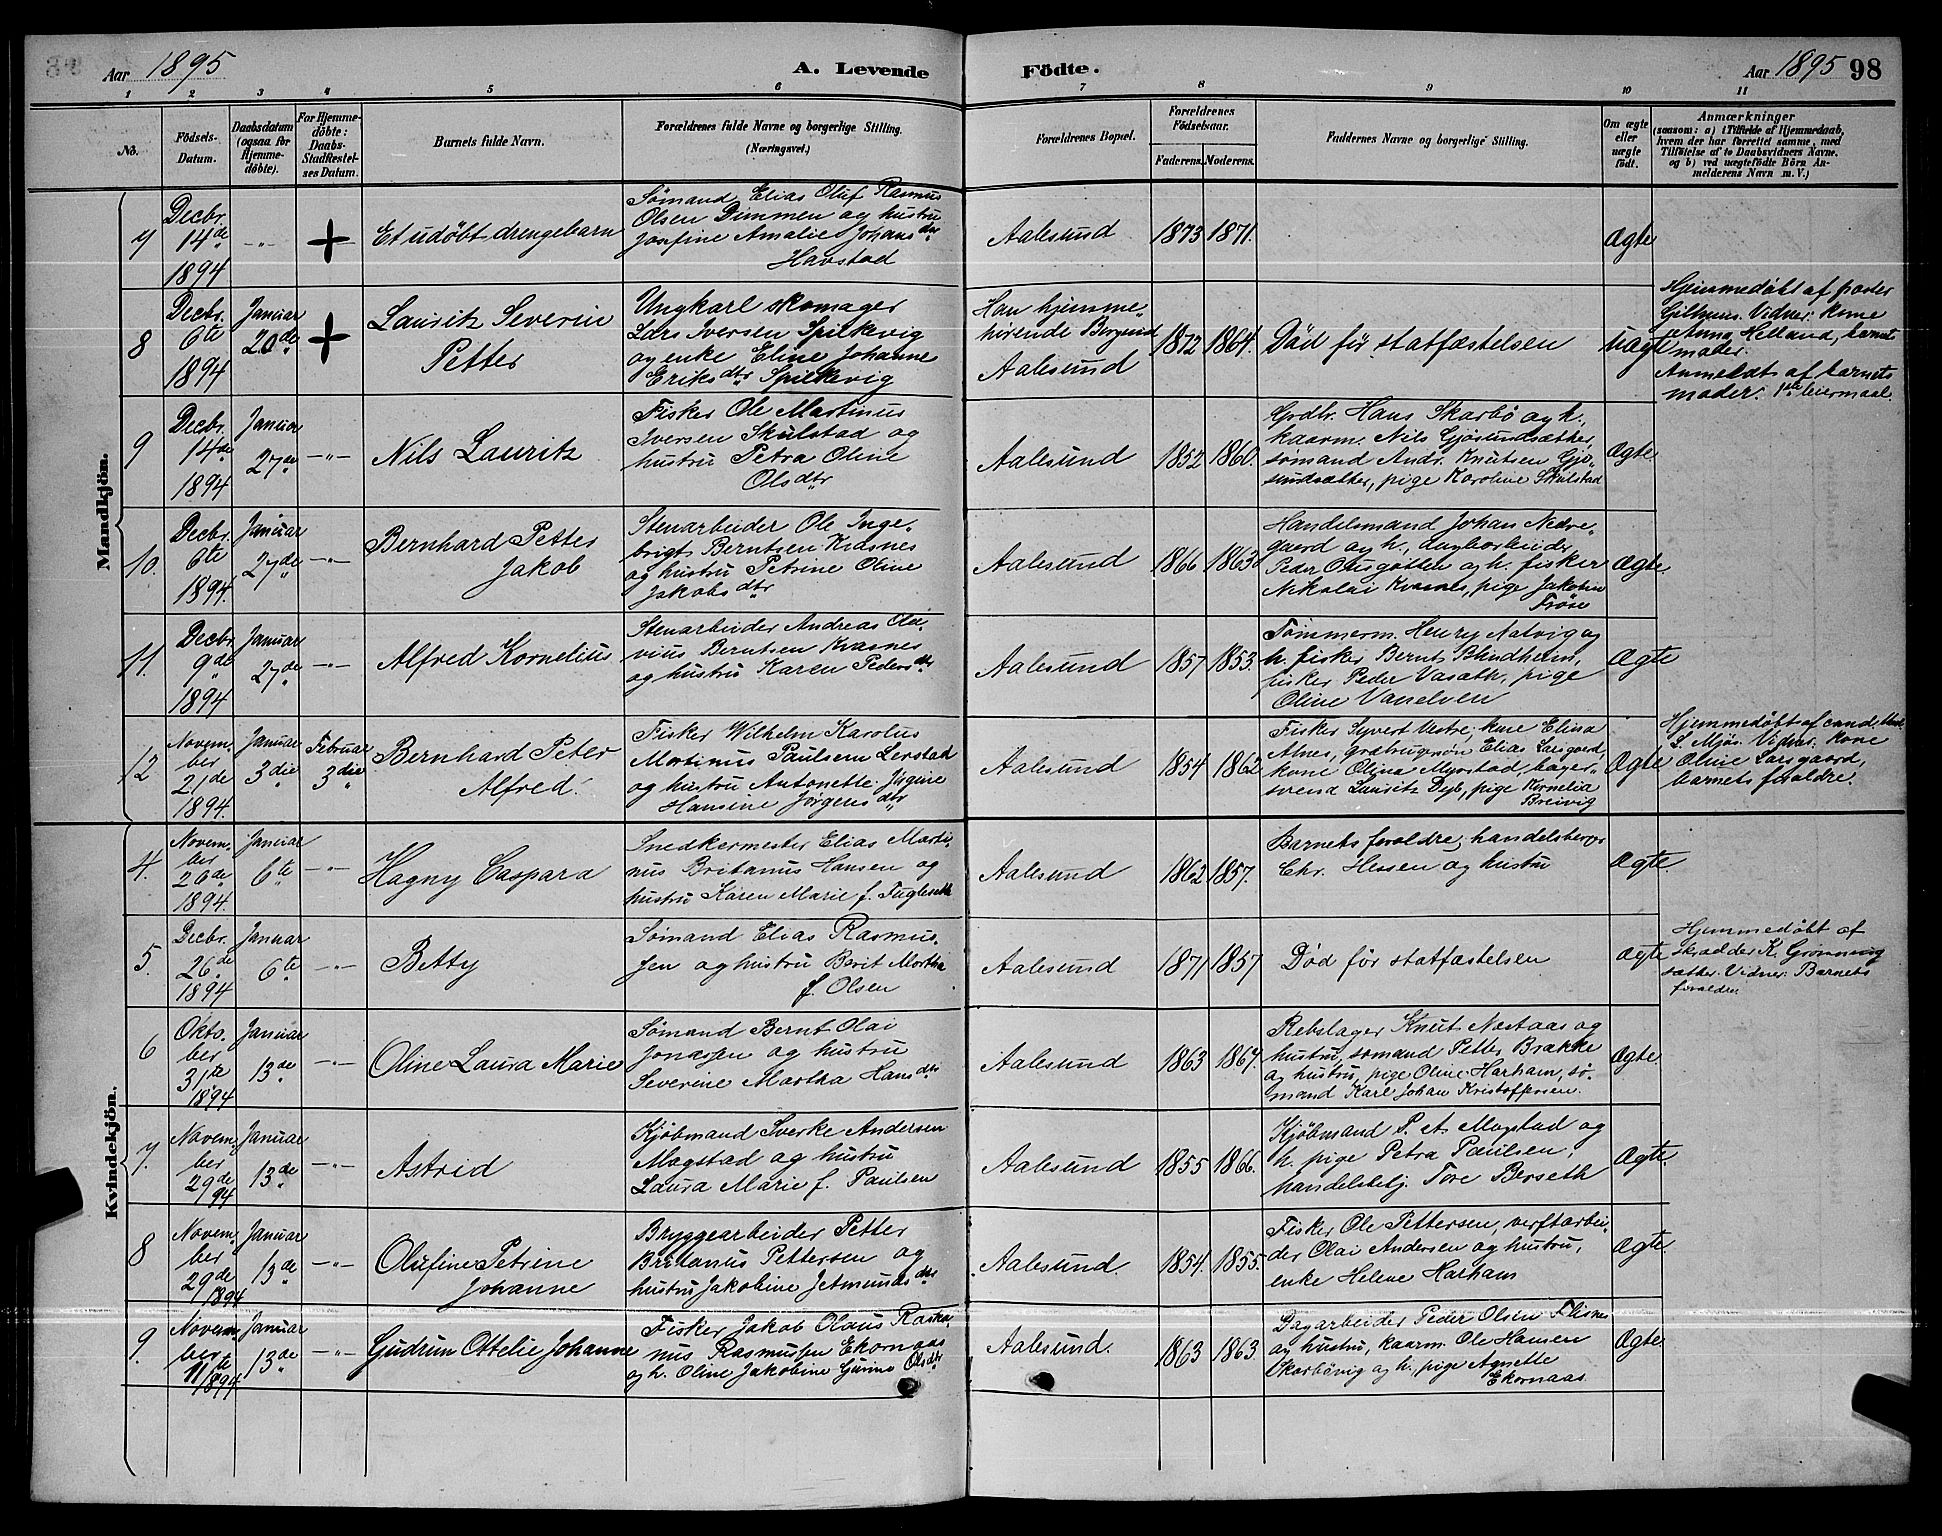 Aar 1895
A. Levende
Födte.
Aar 1895 98
1 2 3 4 5 6 7 8 9 10 11
No.
Födsels-
Datum.
Daabsdatum
(ogsaa for
Hjemme-
döbte).
For Hjemme-
döbte:
Daabs-
Stadfæstel-
ses Datum.
Barnets fulde Navn.
Forældrenes fulde Navne og borgerlige Stilling.
(Næringsvei.)
Forældrenes Bopæl.
Forældrenes
Födselsaar.
Faderens. Moderens.
Faddernes Navne og borgerlige Stilling.
Om ægte
eller
uægte
födt.
Anmærkninger
(saasom: a) i Tilfælde af Hjemmedaab,
hvem der har forrettet samme, med
Tilföielse af to Daabsvidners Navne,
og b) ved uægtefödte Börn An-
melderens Navn m. V.)
Mandkjön.
7
Decbr.
14de
1894
-"-
Et udöbt drengebarn
Sømand Elias Oluf Rasmus
Olsen Dimmen og hustru
Josefine Amalie Johansdtr
Havstad
Aalesund
1873 1871.
Ægte
8
Decbr.
6te
1894
Januar
20de
Lauritz Severin
Petter
Ungkarl skomager
Lars Iversen Spilkevig
og enke Eline Johanne
Eriksdtr Spilkevig
Han hjemme-
hørende Borgund
Aalesund
1872 1864.
Død før statfæstelsen
uægte
Hjemmedøbt af
Vidner: kone
Anna Helland, barnets
moder.
Anmeldt af barnets
moder. 1ste leiermaal.
9
Decbr.
14de
1894
Januar
27de
-"-
Nils Lauritz
Fisker Ole Martinus
Iversen Skulstad og
hustru Petra Oline
Olsdtr
Aalesund
1852 1860.
Grdbr. Hans Skarbø og h.
kaarm. Nils Gjøsundsæther,
sømand Andr. Knutsen Gjø-
sundsæther, pige Karoline Skulstad
Ægte.
10.
Decbr.
6te
1894.
Januar
27de
-"-
Bernhard Petter
Jakob
Stenarbeider Ole Inge-
brigt Berntsen Kvasnes
og hustru Petrine Oline
Jakobsdtr
Aalesund
1866 1863
Handelsmand Johan Nedre-
gaard og h., dagarbeider
Peder Olisgøtten og h. fisker
Nikolai Kvasnes, pige Jakobin
Frøse
Ægte.
11.
Decbr.
9de
1894
Januar
27de
-"-
Alfred Kornelius
Stenarbeider Andreas Ola-
vius Berntsen Kvasnes
og hustru Karen Pedersdtr
Aalesund
1857 1853.
Tømmerm. Henry Nalvig og
h. fisker Bernt Blindheim,
fisker Peder Vasath, pige
Oline Vandven
Ægte
12
Novem-
ber
21de
1894
Januar
3die
Februar
3die
Bernhard Peter
Alfred.
Fisker Wilhelm Karolus
Martinus Paulsen Lerstad
og hustru Antonette Jørgine
Hansine Jørgensdtr
Aalesund
1854 1862
Fisker Syvert Vestre, kone Elina
Alnes, Elias Larsgaard,
kone Olina Myrstad, bager-
svend Lauritz Dyb, pige Kornelia
Breivig
Ægte
Hjemmedøbt af cand.
S. Mjøs. Vidner: kone
Oline Larsgaard,
barnets foreldre.
Kvindekjön.
4.
Novem-
ber
26de
1894.
Januar
6te
-"-
Hagny Caspara
Snedkermester Elias Marti-
nus Britanus Hansen og
hustru Karen Marie f. Fugleseth
Aalesund
1862 1857.
Barnets foreldre, handelsborger
Chr. Hessen og hustru
Ægte.
5.
Decbr.
26de
1894
Januar
6te
-"-
Betty
Sømand Elias Rasmus-
sen og hustru Berit Martha
f. Olsen
Aalesund
1871 1857
Død før statfæstelsen
Ægte
Hjemmedøbt af
skrædder K. Grønning-
sæther. Vidner: Barnets
foreldre.
6
Okto-
ber
31te
1894
Januar
13de
-"-
Oline Laura Marie
Sømand Bernt Olai
Jonassen og hustru
Severine Martha Hansdtr
Aalesund
1863 1867.
Rebslager Knut Nestaas og
hustru, sømand Petter Brække
og hustru, pige Oline Harham, sø-
mand Karl Johan Kristoffersen.
Ægte.
7.
Novem-
ber
29de
94
Januar
13de
-"-
Astrid
Kjöbmand Sverke Andersen
Mogstad og hustru
Laura Marie f. Paulsen
Aalesund
1855 1866.
Kjøbmand P. A. Mogstad og
h. pige Petra Paulsen,
handelsbetj. Tore Berseth
Ægte.
8
Novem-
ber
29de
1894
Januar
13de
-"-
Olufine Petrine
Johanne
Bryggearbeider Petter
Britanus Pettersen og
hustru Jakobine Jetmundsdtr
Aalesund.
1854. 1855.
Fisker Ole Pettersen, verftarbei-
der Olai Andersen og hustru,
enke Helene Harham
Ægte.
9.
Novem-
ber
11te
1894
Januar
13de
-"-
Gudrun Ottelie Johanne
Fisker Jakob Olaus Raska-
nus Rasmussen Ekornaas
og h. Oline Jakobine Gurine Olsdtr
Aalesund.
1863 1863
Dagarbeider Peder Olsen Flisnes
og hustru, kaarm. Ole Hansen
Skarbövig og h., pige Agnette
Ekornaas
Ægte.